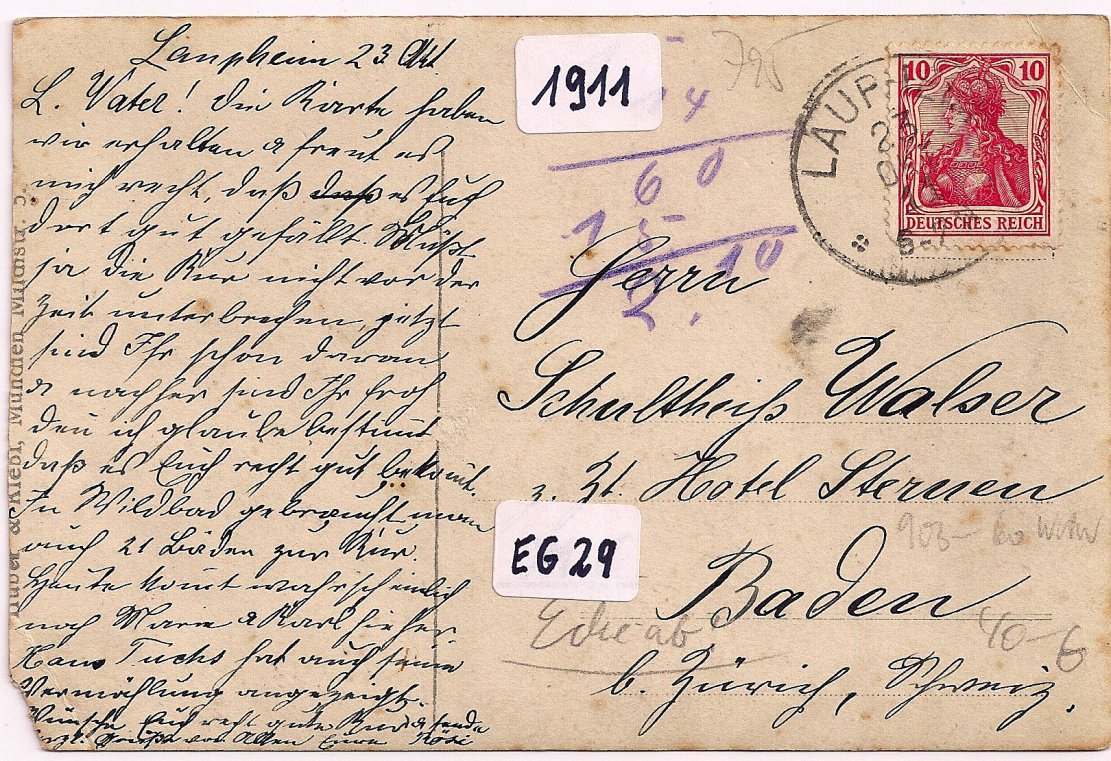 Laupheim 23 Okt.
L. Vater! Die Karte haben
wir erhalten & freut es
mich recht, daß daß es Euch
dort gut gefällt. Müßt
ja die Kur nicht vor der
Zeit unterbrechen, jetzt
sind Ihr schon daran
& nachher sind Ihr froh
den ich glaube bestimmt
daß es Euch recht gut bekomt.
In Wildbad gebraucht man
auch 21 Bäder zur Kur.
Heute komt wahrscheinlich
noch Marie & Karl hieher
Hans Fuchs hat auch seine
Vermählung angezeigt.
Wünsche Euch recht gute Kur & sende
Grüße von Allen Eure Rösi
1911
795
4
60
15
10
2.
LAUPH
10 10
DEUTSCHES REICH
Herrn
Schultheiß Walser
z. Zt. Hotel Sternen
Baden
b. Zürich, Schweiz.
EG 29
Ecke ab
903-
40-
6
Huber & Klebl, München Milchstr. 5.